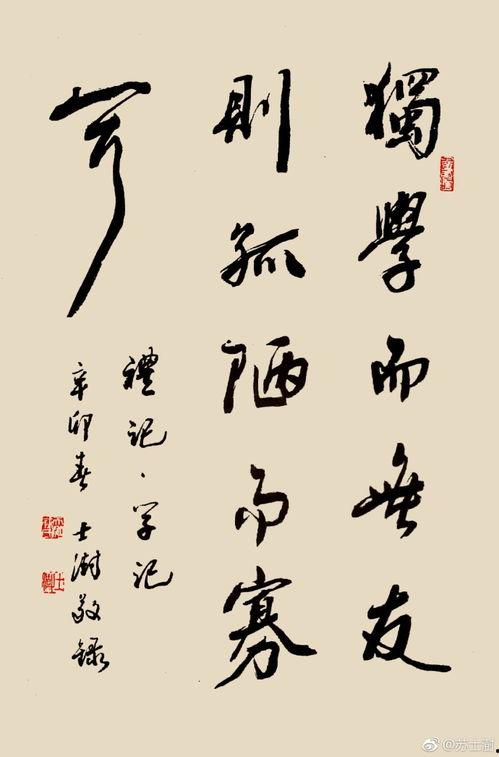 獨學而無友
則孤陋而寡
闻
禮記·学记
辛卯春 士澍敬录
@苏士澍